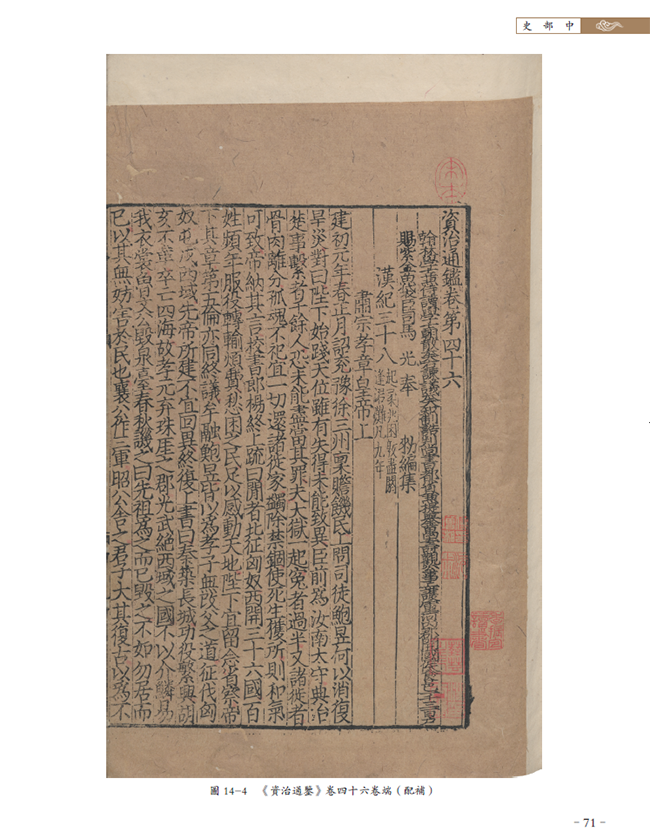 史部中
資治通鑑卷第四十六
翰林學士兼侍讀學士朝散大夫右諫議大夫知制誥判尚書都省兼提舉萬壽觀公事上護軍河內郡開國侯食邑一千三百戶
賜紫金魚袋臣司馬 光奉 勑編集
漢紀三十八 起柔兆困敦盡閼逢涒灘凡九年
肅宗孝章皇帝上
建初元年春正月詔兖豫徐三州稟贍饑民上問司徒鮑昱何以消復
旱災對曰陛下始踐天位雖有失得未能致異臣前爲汝南太守典治
楚事繫者千餘人恐未能盡當其罪夫大獄一起冤者過半又諸徙者
骨肉離分孤魂不祀宜一切還諸徙家蠲除禁錮使死生獲所則和氣
可致帝納其言校書郎楊終上疏曰間者北征匈奴西開三十六國百
姓頻年服役轉輸煩費愁困之民足以感動天地陛下宜留念省察帝
下其章第五倫亦同終議牟融鮑昱皆以爲孝子無改父之道征伐匈
奴屯戍西域先帝所建不宜回異終復上書曰秦築長城功役繁興胡
亥不革卒亡四海故孝元弃珠厓之郡光武絕西域之國不以介鱗易
我衣裳魯文公毀泉臺春秋譏之曰先祖爲之而已毀之不如勿居而
已以其無妨害於民也襄公作三軍昭公舍之君子大其復古以爲不
圖 14-4 《資治通鑒》卷四十六卷端（配補）
- 71 -